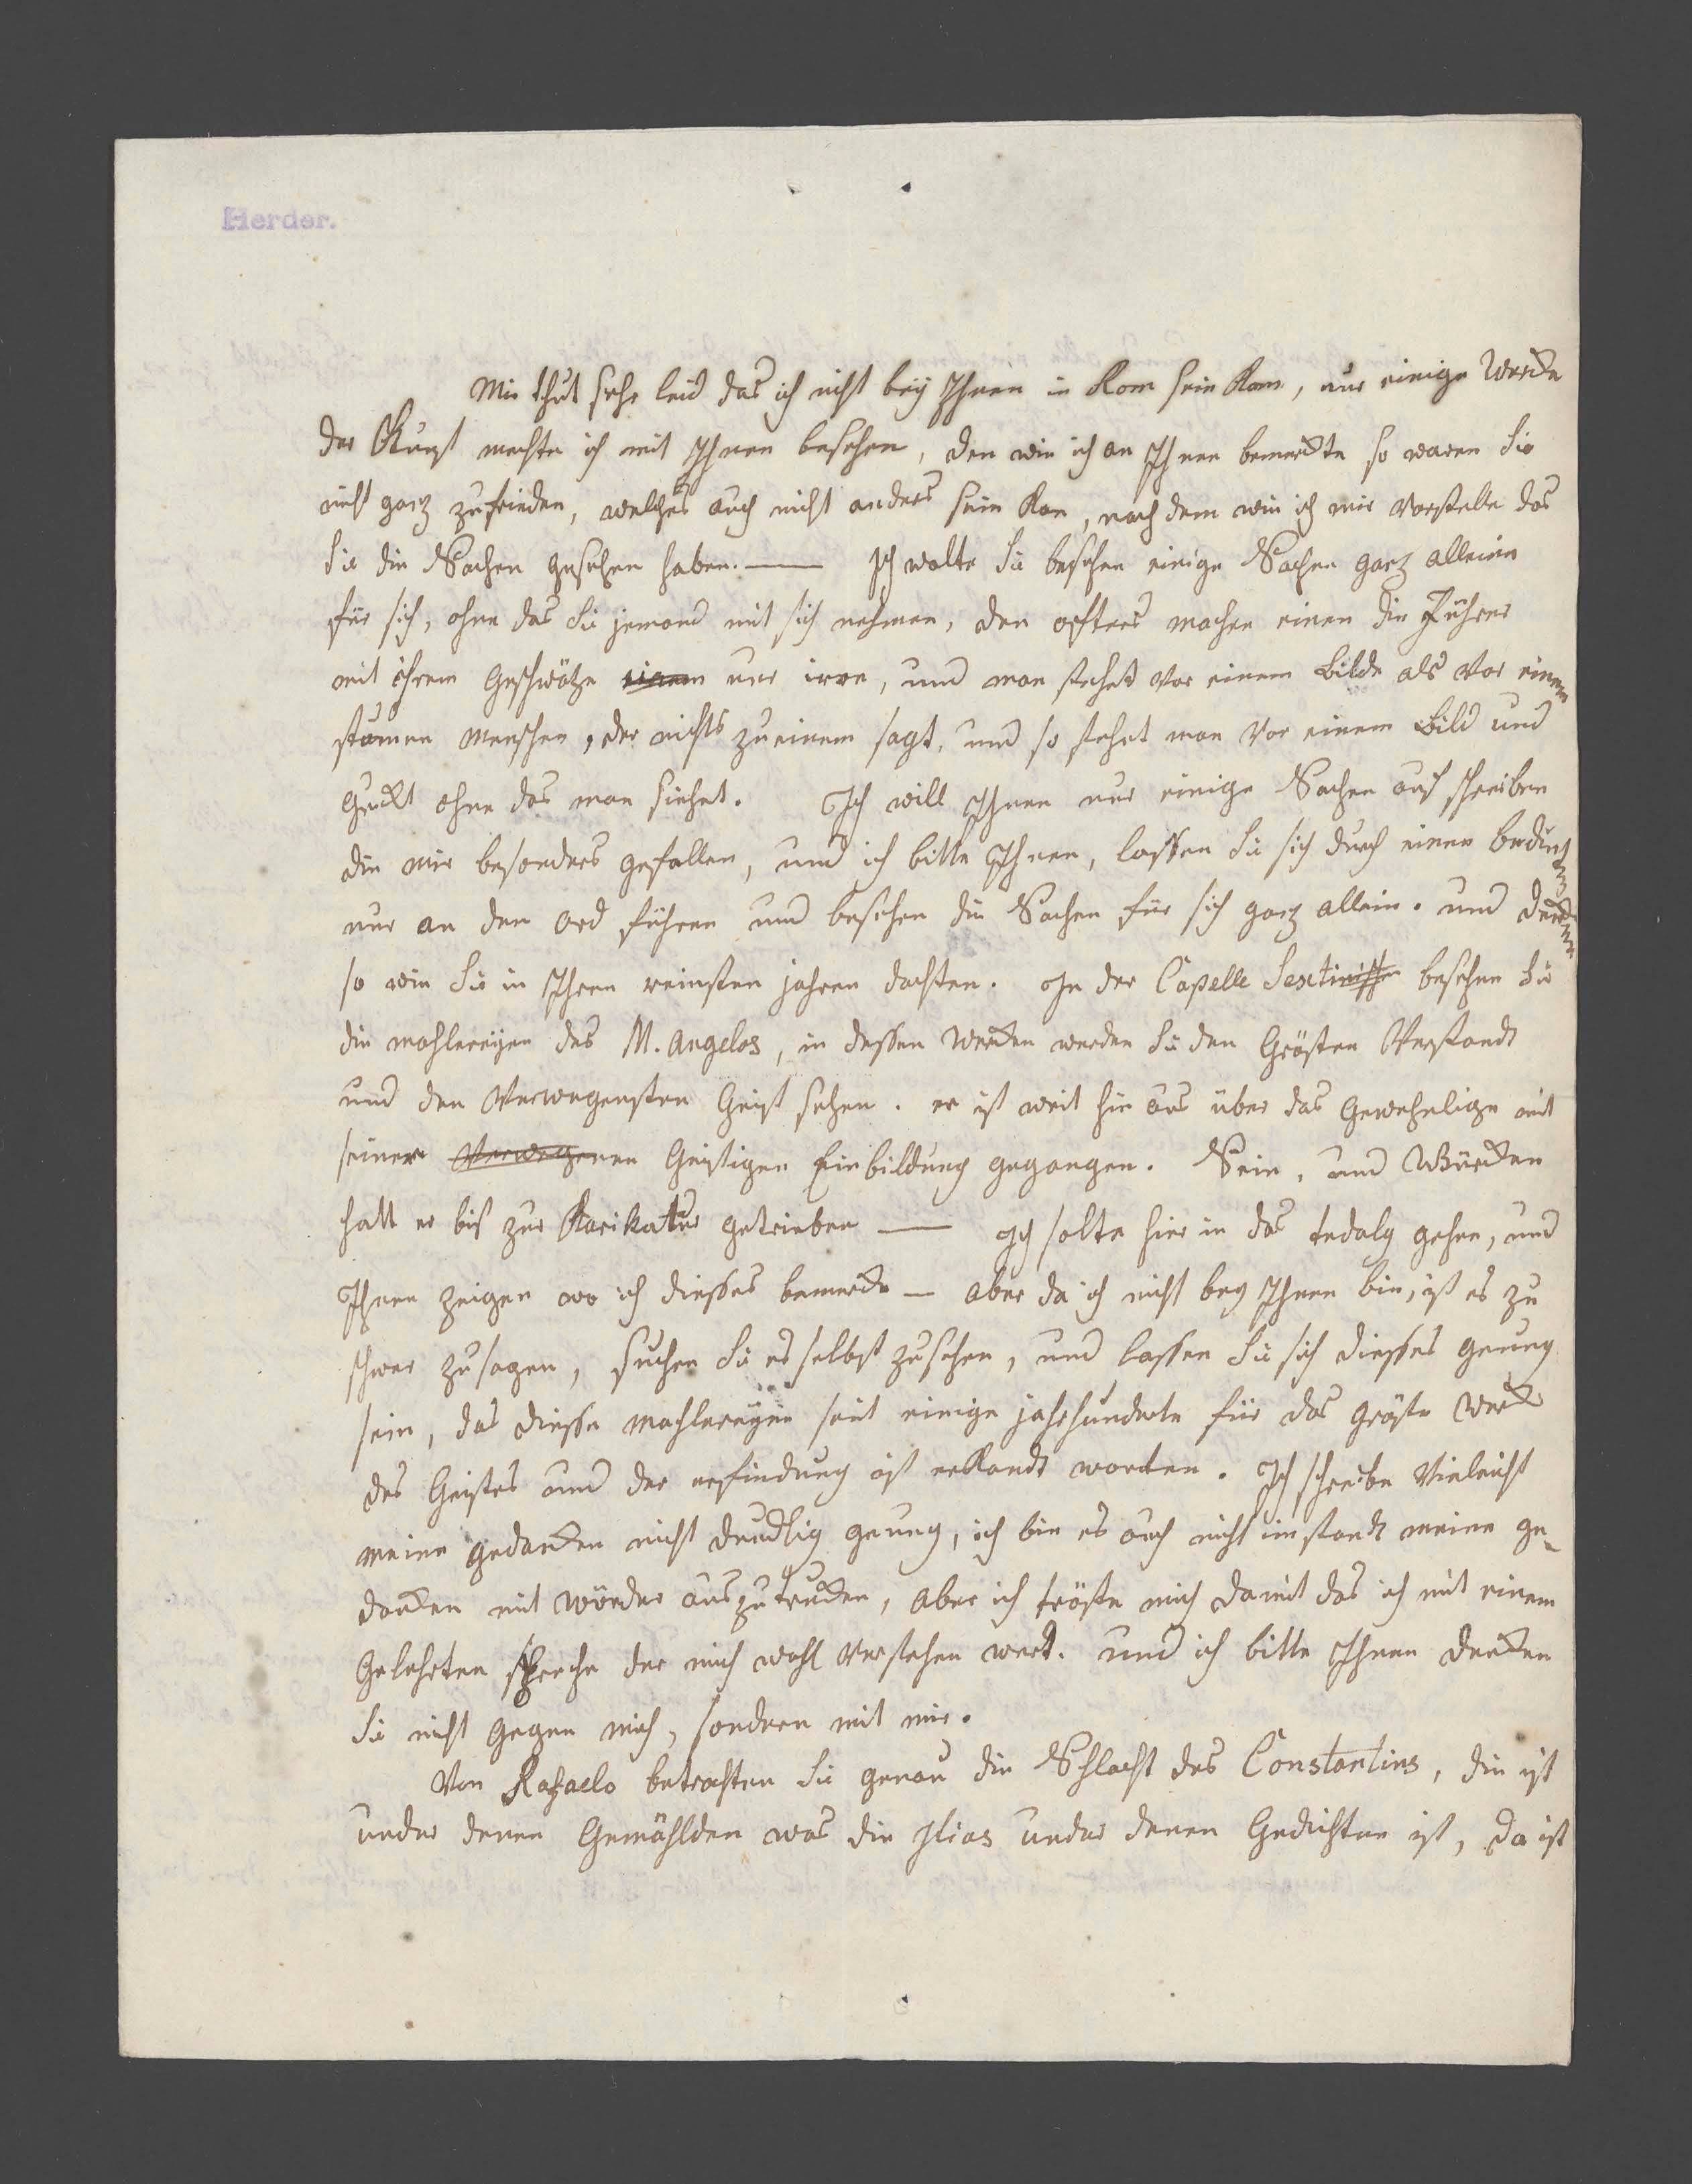 Herder.
Mir thut sehr leid das ich nicht bey Ihnen in Rom sein kan, nur einige Wercke
der Kunst mechte ich mit Ihnen besehen, den wie ich an Ihnen bemerckte so waren Sie
nicht ganz zufrieden, welches auch nicht anders sein kan, nach dem wie ich mir vorstelle das
Sie die Sachen gesehen haben. — Ich wolte Sie besehen einige Sachen ganz alleine
für sich, ohne das Sie jemand mit sich nehmen, den offters machen einen die Führer
mit ihrem Geschwätze einem nur irre, und man stehet vor einem Bilde als vor einem
stumen Menschen, der nichts zu einem sagt, und so stehet man vor einem Bild und
guckt ohne das man siehet. Ich will Ihnen nur einige Sachen auf schreiben
die mir besonders gefallen, und ich bitte Ihnen, lassen Sie sich durch einen bedinten
nur an den Ord führen und besehen die Sachen für sich ganz allein. und dencken
so wie Sie in Ihren reinsten jahren dachten. In der Capelle Sextinischen besehen Sie
die mahlereyen des M. Angelos, in dessen Wercken werden Sie den Grösten Verstandt
und den Verwegensten Geist sehen. er ist weit hin aus über das Gewehnlige mit
seiner Verwegenen Geistigen Einbildung gegangen. Sein, und Würcken
hatt er bis zur Karikatur getrieben — Ich solte hier in das tedalg gehen, und
Ihnen zeigen wo ich diesses bemercke — aber da ich nicht bey Ihnen bin, ist es zu
schwer zu sagen, suchen Sie es selbst zu sehen, und lassen Sie sich diesses genung
sein, das diesse mahlereyen seit einige jahrhunderte für das gröste Werck
des Geistes und der erfindung ist erkandt worden. Ich schreibe Vieleicht
meine gedancken nicht deudlig genung, ich bin es auch nicht im standt meine ge-
dancken mit wörder auszutrucken, aber ich tröste mich damit das ich mit einem
Gelehrten spreche der mich wohl verstehen werd. und ich bitte Ihnen dencken
Sie nicht gegen mich, sondern mit mir.
Von Rafaelo betrachten Sie genau die Schlacht des Constantins, die ist
under denen Gemählden was die Ilias under denen Gedichten ist, da ist